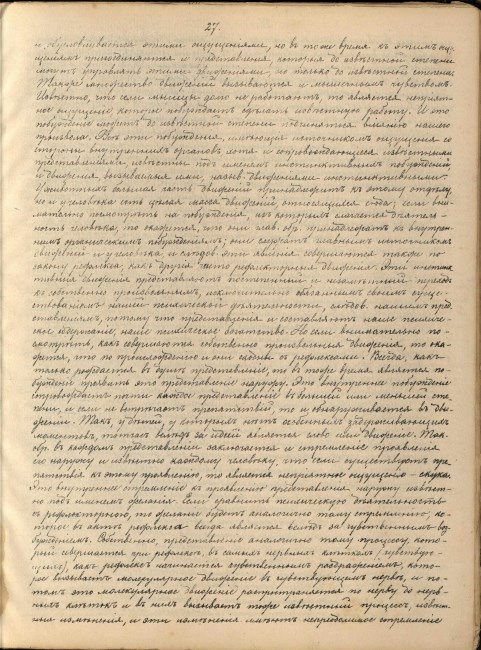 27.
и обусловливается этими ощущениями, но въ тоже время къ этимъ ощу-
щеніямъ присоединяются и представленія, которыя до извѣстной степени
могутъ управлять этими движеніями, но только до извѣстной степени.
Такое множество движеній вызывается и мышечнымъ чувствомъ.
Извѣстно, что если мышцы долго не работаютъ, то является непріят-
ное ощущеніе, которое побуждаетъ сдѣлать извѣстную работу. И это
побужденіе можетъ до извѣстной степени подчиняться вліянію нашего
произвола. Всѣ эти побужденія, имѣющія источникомъ ощущенія со
стороны внутреннихъ органовъ хотя и сопровождающіяся извѣстными
представленіями, извѣстны подъ именемъ инстинктивныхъ побужденій,
и движенія, вызываемыя ими, назыв. движеніями инстинктивными.
У животныхъ большая часть движеній принадлежитъ къ этому отдѣлу,
но и у человѣка есть цѣлая масса движеній, относящихся сюда; если вни-
мательно посмотрѣть на побужденія, изъ которыхъ слагается дѣятель-
ность человѣка, то окажется, что они глав. обр. принадлежатъ къ внутрен-
нимъ органическимъ побужденіямъ; они служатъ главнымъ источникомъ
движеній и у человѣка, и слѣдов. эти явленія совершаются также по
закону рефлекса, какъ другія чисто рефлекторныя движенія. Эти инстинк-
тивныя движенія представляютъ постепенный и незамѣтный переходъ
къ собственно произвольнымъ, исключительно обязаннымъ своимъ суще-
ствованіемъ нашей психической дѣятельности, слѣдов. нашимъ пред-
ставленіямъ, потому что представленія и составляютъ наше психиче-
ское содержаніе, наше психическое богатство. Но если внимательно по-
смотрѣть, какъ совершаются собственно произвольныя движенія, то ока-
жется, что по происхожденію и они сходны съ рефлексами. Всегда, какъ
только рождается въ душѣ представленіе, то въ тоже время является по-
бужденіе проявить это представленіе наружу. Это внутреннее побужденіе
сопровождаетъ почти каждое представленіе въ большей или меньшей сте-
пени, и если не встрѣчаетъ препятствій, то и обнаруживается въ дви-
женіи. Такъ, у дѣтей, у которыхъ нѣтъ особенныхъ задерживающихъ
моментовъ, тотчасъ вслѣдъ за идеей является слово или движеніе. Так.
обр. въ каждомъ представленіи заключается и стремленіе проявленія
его наружу и извѣстно каждому человѣку, что если существуютъ пре-
пятствія къ этому проявленію, то является непріятное ощущеніе – скука.
Это внутреннее стремленіе къ проявленію представленія наружу извѣст-
но подъ именемъ желанія. Если сравнить психическую дѣятельность
съ рефлекторною, то желаніе будетъ аналогично тому стремленію, ко-
торое въ актѣ рефлекса всегда является вслѣдъ за чувственнымъ воз-
бужденіемъ. Собственно, представленіе аналогично тому процессу, кото-
рый совершается при рефлексѣ, въ самыхъ нервныхъ клѣткахъ (чувствую-
щихъ), какъ рефлексъ начинается чувственнымъ раздраженіемъ, кото-
рое вызываетъ молекулярное движеніе въ чувствующемъ нервѣ, и по-
томъ это молекулярное движеніе распространяется по нерву до нерв-
ныхъ клѣтокъ и въ нихъ вызываетъ тоже извѣстный процессъ, извѣст-
ныя измѣненія, и эти измѣненія имѣютъ непреодолимое стремленіе